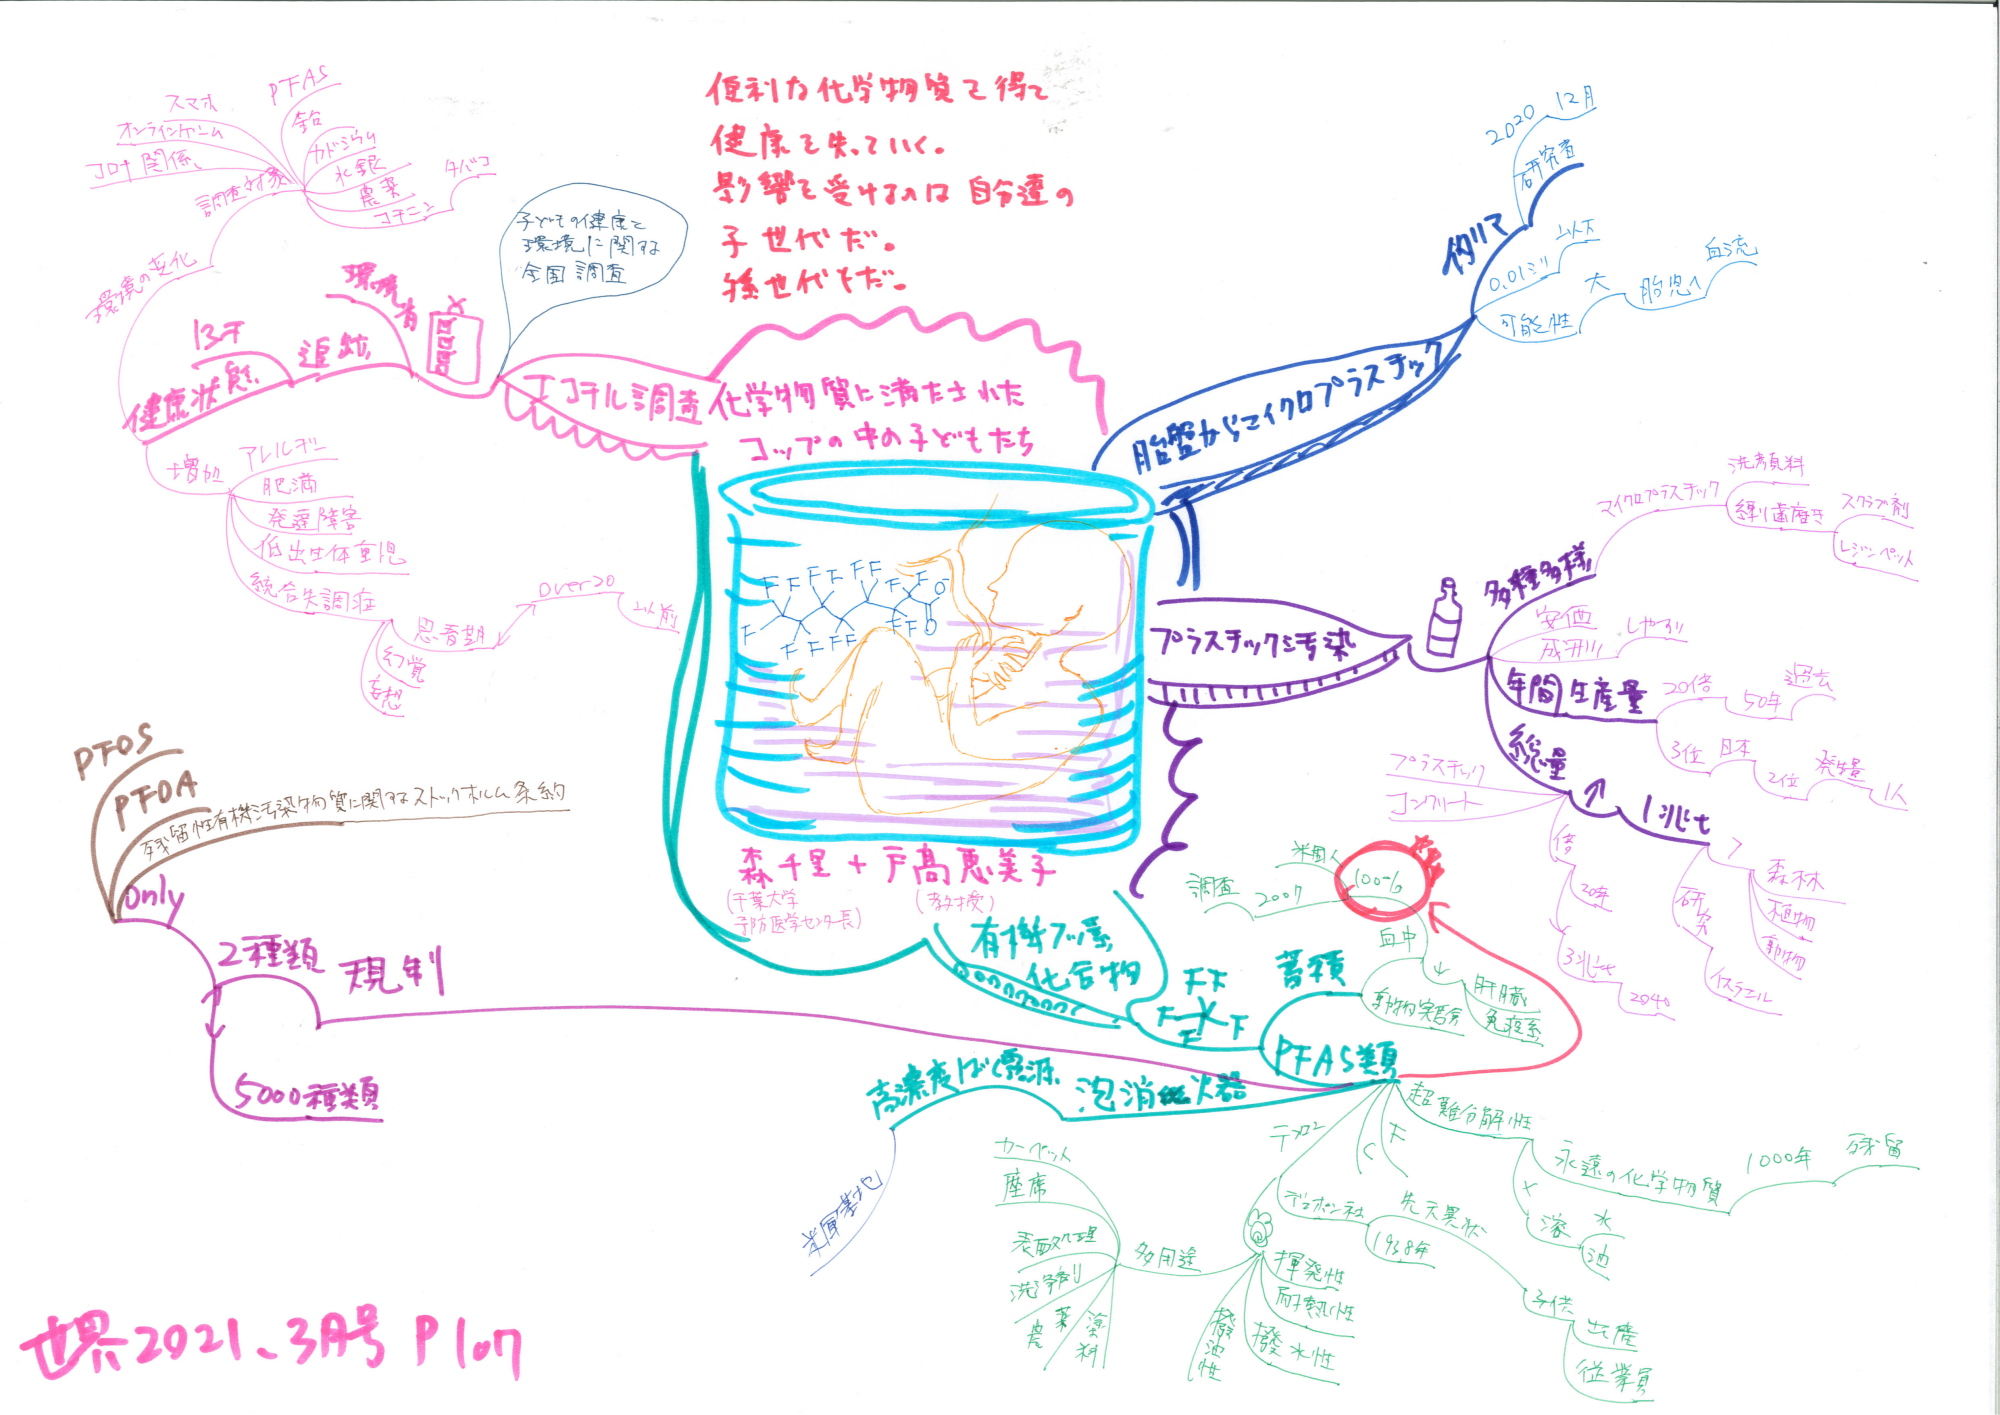 便利な化学物質を得て
健康を失っていく。
影響を受けるのは自分達の
子世代だ。
孫世代もだ。
化学物質に満たされた
コップの中の子どもたち
森千里+戸髙恵美子
(千葉大学
予防医学センター長)
(教授)
胎盤からマイクロプラスチック
伊にて
2020
12月
研究者
0.01ミリ
以下
可能性
大
胎児へ
血流
プラスチック汚染
多種多様
マイクロプラスチック
洗顔料
練り歯磨き
スクラブ剤
レジンペレット
安価
成形
しやすい
年間生産量
20倍
50年
過去
3位
日本
2位
発生量
1人
総量
↑
1兆t
プラスチック
コンクリート
倍
20年
3兆t
2040
>
森林
植物
動物
研究
イスラエル
有機フッ素
化合物
F F
F F
F
PFAS類
蓄積
動物実験
血中
100%
米国人
2007
調査
↓
肝臓
免疫系
超難分解性
永遠の化学物質
1000年
残留
×
溶
水
油
F
C
テフロン
デュポン社
1938年
先天異状
子供
出産
従業員
揮発性
耐熱性
撥水性
撥油性
多用途
カーペット
座席
表面処理
洗浄剤
農薬
塗料
泡消火器
高濃度ばく露源
米軍基地
規制
2種類
only
PFOS
PFOA
残留性有機汚染物質に関するストックホルム条約
5000種類
エコチル調査
子どもの健康と
環境に関する
全国調査
環境省
追跡
13才
健康状態
環境の変化
調査対象
コロナ関係
オンラインゲーム
スマホ
PFAS
鉛
カドミウム
水銀
農薬
コチニン
タバコ
増加
アレルギー
肥満
発達障害
低出生体重児
統合失調症
思春期
over20
以前
幻覚
妄想
F F F F F F F F
F
F F F F F F
O⁻
O
世界2021、3月号 P107